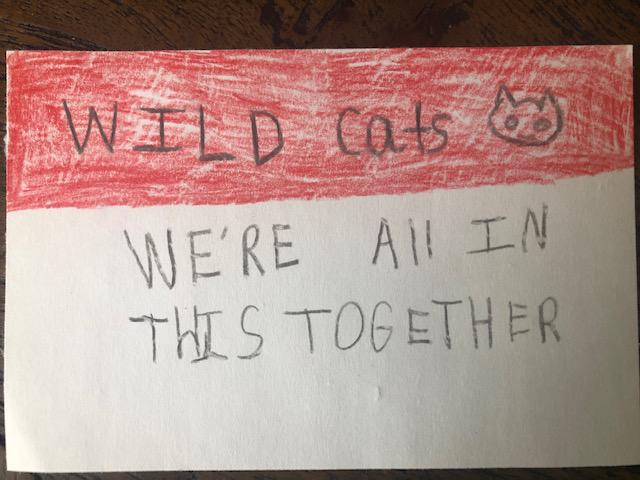 WILD cats
WE'RE All IN
THIS TOGETHER